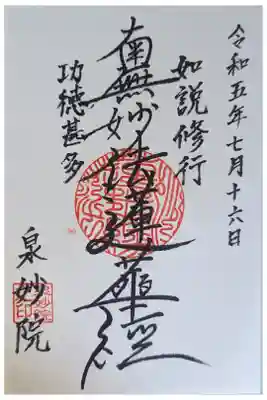 令和五年七月十六日
如説修行
南無妙法蓮華經
功徳甚多
泉妙院